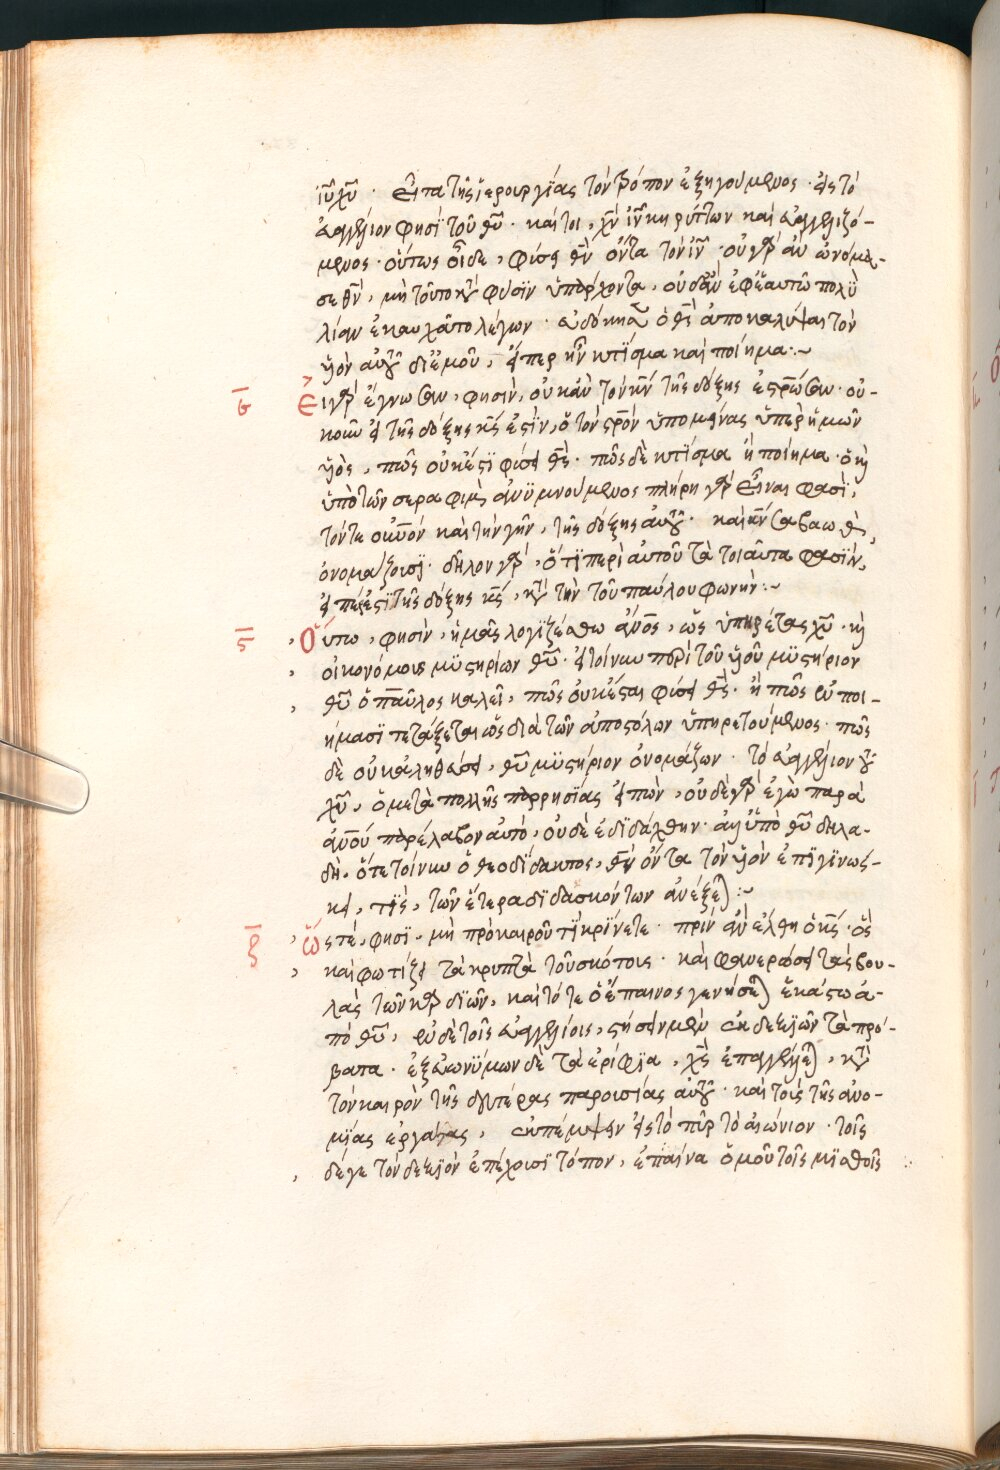 ἰῦ χῦ · εἶτα τῆς ἱερουργίας τὸν τρόπον ἐξηγούμενος · εἰς τὸ
εὐαγγέλιον φησὶ τοῦ θῦ · καίτοι, χν ιν κηρύττων καὶ εὐαγγελιζό-
μενος · οὕτως οἶδε, φύσει θν ὄντα τὸν ιν · οὐ γὰρ ἂν ὠνόμα-
σε θν, μὴ τοῦτο κατὰ φύσιν ὑπάρχοντα, οὐδ' ἂν ἐφ' ἑαυτῶ πολὺ
λίαν ἐκαυχᾶτο λέγων · εὐδόκησεν ὁ θς ἀποκαλύψαι τὸν
υἱὸν αὐτοῦ δι' ἐμοῦ, εἴπερ ἦν κτίσμα καὶ ποίημα :~
ε Εἰ γὰρ ἔγνωσαν, φησὶν, οὐκ ἂν τὸν κν τῆς δόξης ἐσρωσαν · οὐ-
κοῦν εἰ τῆς δόξης κς ἐστὶν, ὁ τὸν σρὸν ὑπομείνας ὑπὲρ ἡμῶν
υἱὸς, πῶς οὐκ ἔστι φύσει θς · πῶς δὲ κτίσμα ἢ ποίημα · ὁ καὶ
ὑπὸ τῶν σεραφὶμ ἀνυμνούμενος πλήρη γὰρ εἶναι φασὶ,
τόν τε οὐνον καὶ τὴν γῆν, τῆς δόξης αὐτοῦ · καὶ κν σαβαωθ,
ὀνομάζουσι · δῆλον γὰρ, ὅτι περὶ αὐτοῦ τὰ τοιαῦτα φασὶν,
εἴπερ ἐστὶ τῆς δόξης κς, κατὰ τὴν τοῦ παύλου φωνὴν :~
ς Οὕτω, φησὶν, ἡμᾶς λογιζέσθω ἄνος, ὡς ὑπηρέτας χῦ · καὶ
οἰκονόμους μυστηρίων θῦ · εἰ τοίνυν περὶ τοῦ υἱοῦ μυστήριον
θῦ ὁ παῦλος καλεῖ, πῶς οὐκ ἔσται φύσει θς · ἢ πῶς ἐν ποι-
ήμασι τετάξεται ὡς διὰ τῶν ἀποστόλων ὑπηρετούμενος · πῶς
δὲ οὐκ ἀληθεύσει, θῦ μυστήριον ὀνομάζων · τὸ εὐαγγέλιον τοῦ
χῦ, ὁ μετὰ πολλῆς παρρησίας εἰπὼν, οὐδὲ γὰρ ἐγὼ παρὰ
ἀνου παρέλαβον αὐτὸ, οὐδὲ ἐδιδάχθην · ἀλλ' ὑπὸ θῦ δηλα-
δὴ. ὅτε τοίνυν ὁ θεοδίδακτος, θν ὄντα τὸν υἱὸν ἐπιγινώσ-
κει, τίς, τῶν ἕτερα διδασκόντων ἀνέξεται :~
ζ Ὥστε, φησὶ, μὴ πρὸ καιροῦ τι κρίνετε · πρὶν ἂν ἔλθη ὁ κς · ὃς
καὶ φωτίζει τὰ κρυπτὰ τοῦ σκότους · καὶ φανερώσει τὰς βου-
λὰς τῶν καρδιῶν, καὶ τότε ὁ ἔπαινος γενήσεται ἑκάστω ἀ-
πὸ θῦ, ἐν δὲ τοῖς εὐαγγελίοις, στήσειν μὲν ἐκ δεξιῶν τὰ πρό-
βατα · ἐξ εὐωνύμων δὲ τὰ ἐρίφια, χς ἐπαγγέλλεται, κατὰ
τὸν καιρὸν τῆς δευτέρας παρουσίας αὐτοῦ · καὶ τοὺς τῆς ἀνο-
μίας ἐργάτας, ἐκπέμψειν εἰς τὸ πῦρ τὸ αἰώνιον · τοῖς
δέ γε τὸν δεξιὸν ἐπέχουσι τόπον, ἐπαίνα ὁμοῦ τοῖς μισθοῖς